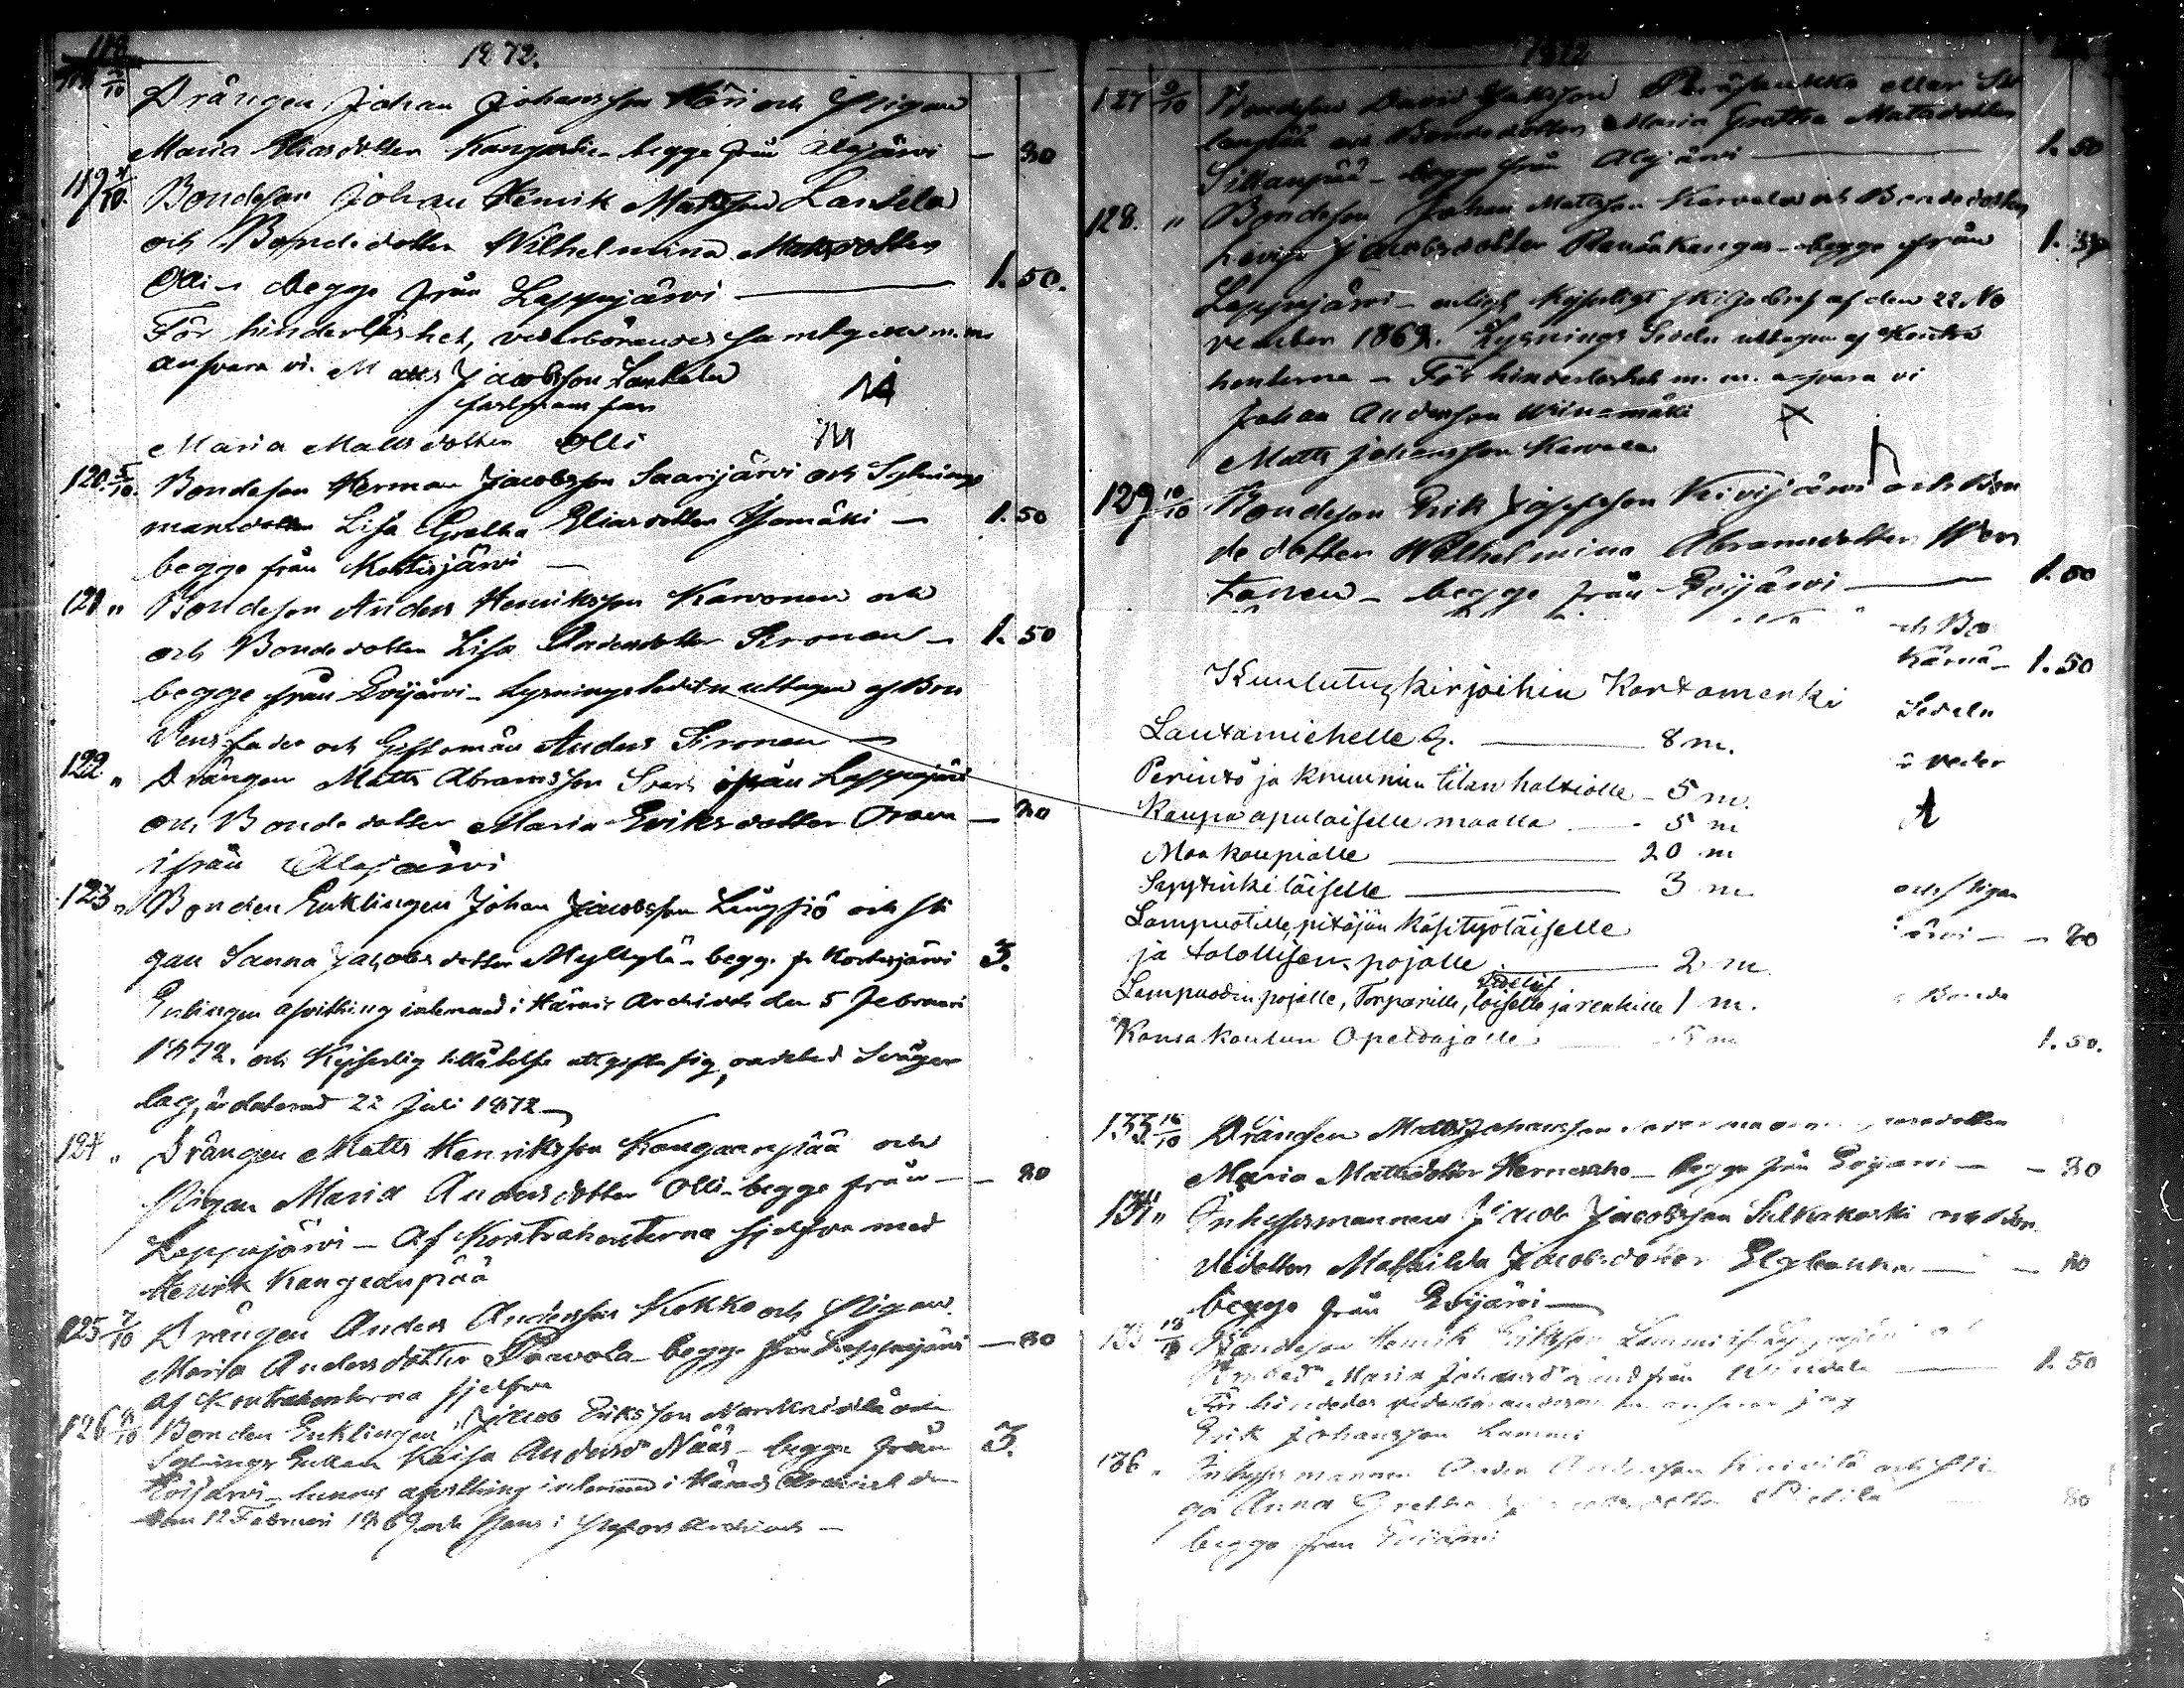 1872.
118 2/10 Drängen Johan Johansson och Pigan
Maria Eliasdotter Kangas begge från Alajärvi — 80
119 4/10 Bondeson Johan Henrik Mattsson Lantela
och Bondedotter Wilhelmina Mattsdotter
Olli — begge från Lappajärvi — 1.50.
För hinderlöshet, vederbörandes samtycke m.m.
ansvara vi. Matts Jacobsson Lantela
Maria Mattsdotter Olli
120. 5/10. Bondeson Herman Jacobsson Saarijärvi och Sytnings
mansdotter Lisa Gretha Eliasdotter Isomäki — 1.50
begge från Kortesjärvi —
121 " Bondeson Anders Henriksson Karvonen och
och Bondedotter Lisa Andersdotter Sironen — 1.50
begge från Evijärvi — Lysningssedeln uttagen af Bru
dens fader och Giftoman Anders Sironen —
122 " Drängen Matts Abramsson ifrån Lappajärvi
och Bondedotter Maria Eriksdotter Orava — 80
ifrån Alajärvi
123 " Bonden Enklingen Johan Jacobsson Långsjö och Pi
gan Sanna Jakobsdotter Myllylä — begge fr Kortesjärvi 3.
Enklingen afvittring inlemnad i Härads Archivet den 5 Februari
1872. och Kejserlig tillåtelse att gifta sig, oaktad Svåger
lag, är daterad 22 Juli 1872 —
124 " Drängen Matts Henriksson Kangaanpää och
Pigan Maria Andersdotter Olli — begge från — 80
Lappajärvi — Af Kontrahenterna sjelfva med
Henrik Kangaanpää
125 7/10 Drängen Anders Andersson Kokko och Pigan
Maria Andersdotter Paavola — begge från Lappajärvi — 80
af Kontrahenterna sjelfva
126 /10 Bonden Enklingen Jacob Eriksson och
Sytnings Enkan Kaisa Andersd:r Nääs — begge från 3.
Evijärvi — hennes afvittring inlemnad i Härads Archivet den
den 12 Februari 1869 och hans i Archivet —
1872
127 9/10 Bondeson David eller Sil
lanpää och Bondedotter Maria Gretha Mattsdotter
Sillanpää — begge från Alajärvi — 1.50
128. " Bondeson Johan Mattsson Karvala och Bondedotter
Lovisa Jacobsdotter Rantakangas — begge från 1.50
Lappajärvi — enligt Kejserligt skiljobref af den 22 No
vember 1869. Lysnings Sedeln uttagen af Kontra
henterna — För hinderlöshet m.m. ansvara vi
Johan Andersson Wiinamäki
Matts Johansson Karvala
129 10/10 Bondeson Erik Josefsson Kivijärvi och Bon
dedotter Wilhelmina Abramsdotter
— begge från Evijärvi — 1.50
och Bo
Kärnä — 1.50
Sedeln
Kuulutuskirjoihin Kartamerki
Lautamiehelle — 8 m.
Perintö ja kruunun tilan haltiolle — 5 m.
Kaupa apulaiselle maalla — 5 m
Maakaupialle — 20 m
— 3 m
Lampuotille, pitäjän käsityöläiselle
ja talollisen pojalle — 2 m
Lampuodin pojalle, Torparille, loiselle ja renkille 1 m.
Kansakoulun Opettajalle — 5 m
och Pigan
järvi — 80
Bonde
1.50.
133. 16/10 Drängen Matts Johansson
Maria Mattsdotter Hernesaho — begge från Evijärvi — 80
134 " Inhysesmannen Jacob Jacobsson Sulkakoski och Bon
dedotter Mathilda Jacobsdotter — 80
begge från Evijärvi —
135 18/10 Bondeson Henrik Eriksson Lammi ifrån Lappajärvi
Maria från — 1.50
ansvarar jag
Erik Johansson Lammi
136 " Inhysesmannen Anders Andersson och Pi
ga Anna Gretha 80
begge från Evijärvi